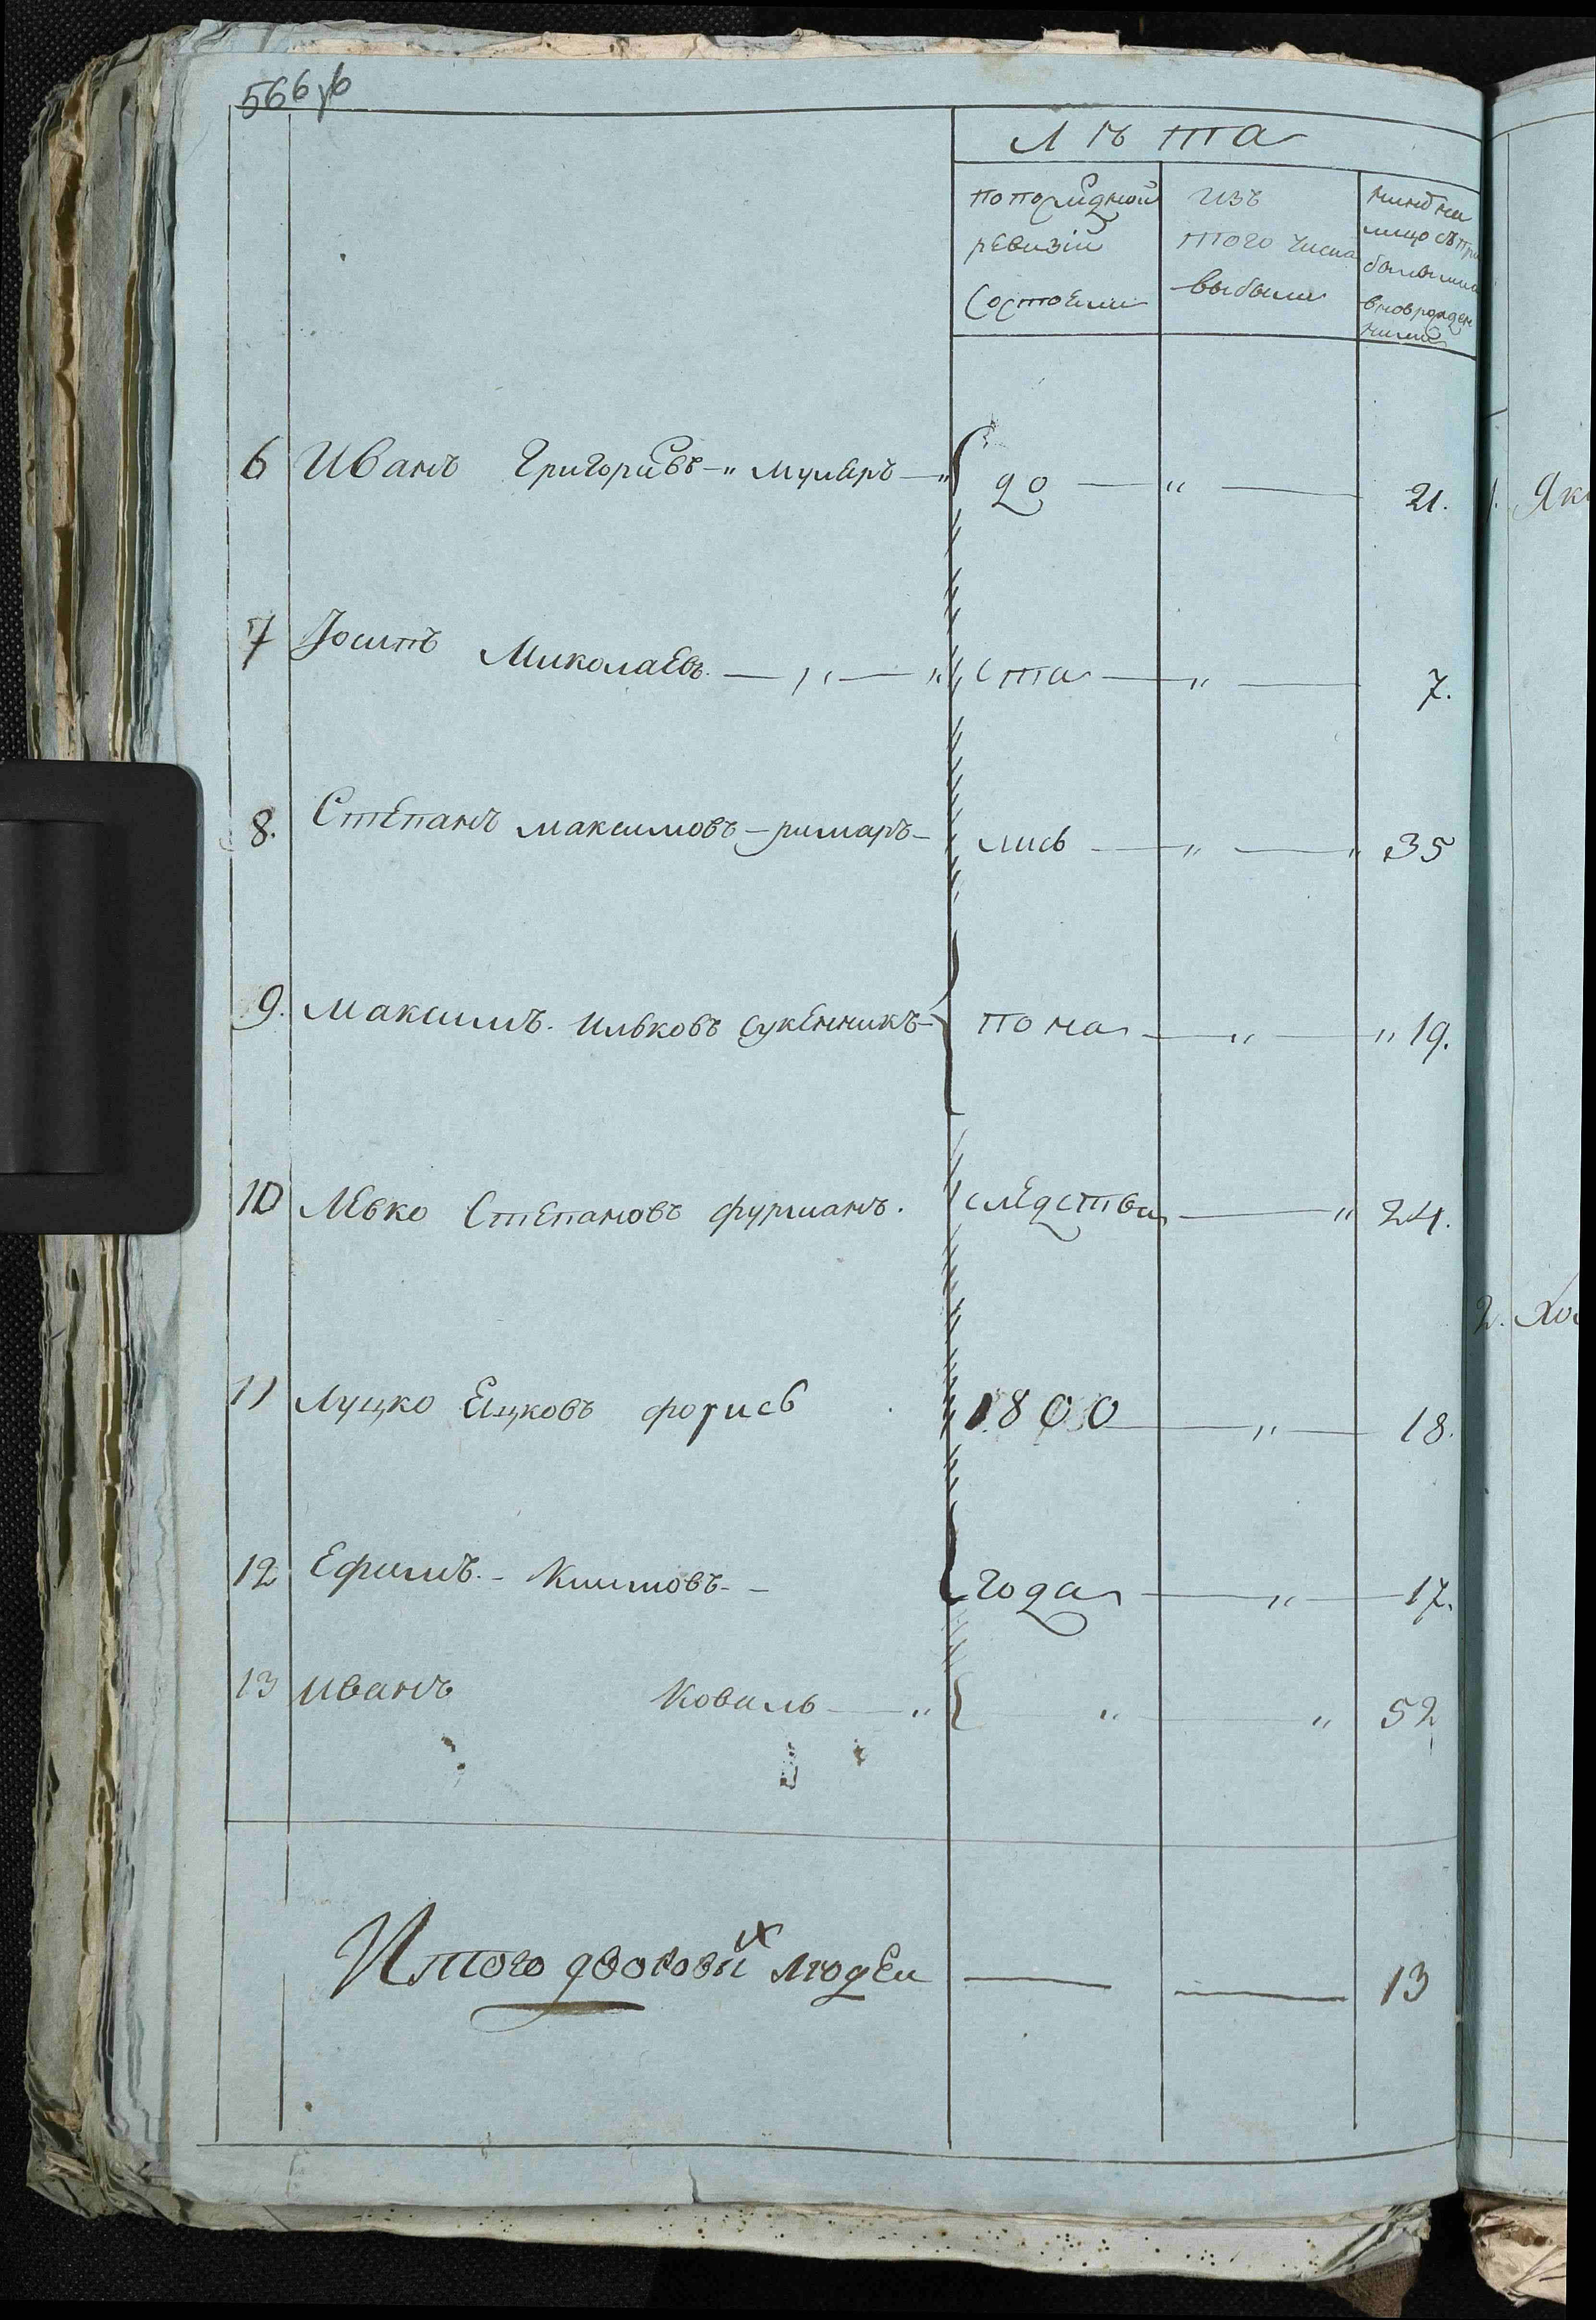 566 об
лѣта
по последней
ревизіи
состоели
изъ
того числа
выбыли
нынѣ на
лицо съ при
былыми
вноврожден
ными
6 Иванъ Григоривъ -„ муляръ -„ до - „ - 21.
7 Іосипъ Миколаевъ - „ - „ ста - „ - 7.
8. Степанъ максимовъ - римаръ - лись - „ - „ 35
9. Максимъ. Ильковъ сукенникъ - по на - „ - „ 19.
10 Левко Степановъ фурманъ. следства - „ 24.
11 Луцко Ецковъ форись 1800 - „ - 18.
12 Ефимъ. - Климовъ. - года - „ - 17.
13 Иванъ Коваль - „ - „ - „ 52
Итого дворовых людеи - - 13
1. Як
2. Хо